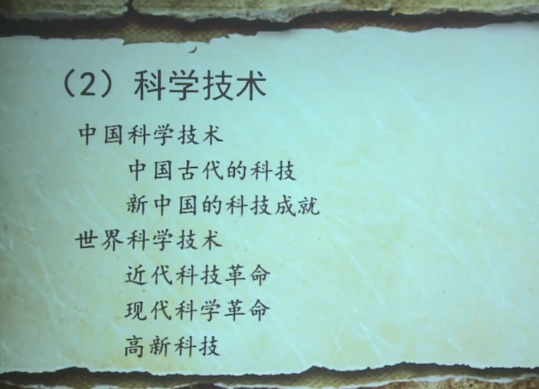 （2）科学技术
中国科学技术
中国古代的科技
新中国的科技成就
世界科学技术
近代科技革命
现代科学革命
高新科技